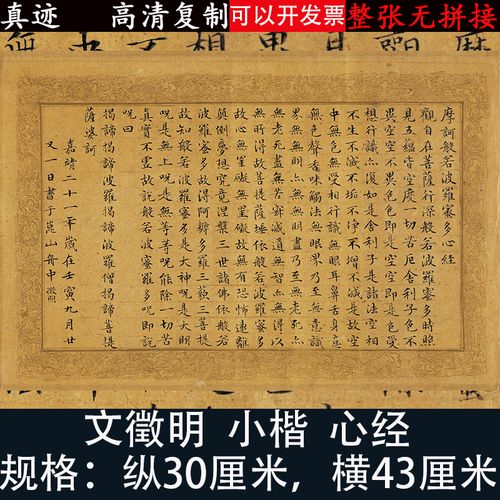 真迹 高清复制 可以开发票 整张无拼接
摩訶般若波羅蜜多心經
觀自在菩薩行深般若波羅蜜多時照
見五蘊皆空度一切苦厄舍利子色不
異空空不異色色即是空空即是色受
想行識亦復如是舍利子是諸法空相
不生不滅不垢不淨不增不減是故空
中無色無受想行識無眼耳鼻舌身意
無色聲香味觸法無眼界乃至無意識
界無無明亦無無明盡乃至無老死亦
無老死盡無苦集滅道無智亦無得以
無所得故菩提薩埵依般若波羅蜜多
故心無罣礙無罣礙故無有恐怖遠離
顛倒夢想究竟涅槃三世諸佛依般若
波羅蜜多故得阿耨多羅三藐三菩提
故知般若波羅蜜多是大神呪是大明
呪是無上呪是無等等呪能除一切苦
真實不虛故說般若波羅蜜多呪即說
呪曰
揭諦揭諦波羅揭諦波羅僧揭諦菩提
薩婆訶
嘉靖二十一年歲在壬寅九月廿
又一日書于崑山舟中 徵明
文徵明 小楷 心经
规格：纵30厘米，横43厘米